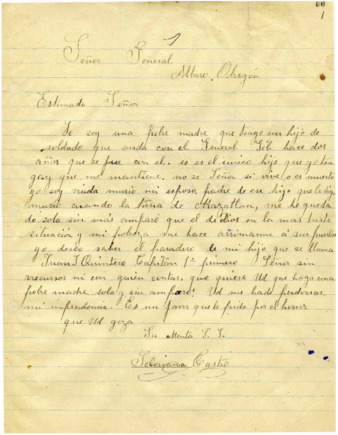 1
Señor General
Alvaro. Obregón
Estimado Señor
Yo soy una pobre madre que tengo un hijo de
soldado que anda con el General Gil hace dos
años que se fue con el. es es el unico hijo que yo tengo
y que me mantiene, no se Señor si vive o es muerto
yo soy viuda murio mi esposo padre de ese hijo que le digo
murio cuando la toma de Mazatlan, me he quedado
sola sin más amparo que el de Dios en la mas triste
situacion y mi pobreza me hace arrimarme á sus puertas
yo deseo saber el paradero de mi hijo que se llama
Juan J Quintero Capitan 1º primero Señor sin
recursos ni con quien contar. que quiere Ud que haga una
pobre madre sola y sin amparo! Ud me hade perdonar
mi imprudencia. Es un favor que le pido por el honor
que Ud goza
Su Atenta S. S.
Castro